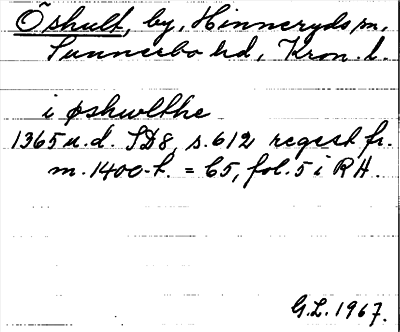 Öshult, by, Hinneryds sn,
Sunnerbo hd, Kron. l.
i øshwlthe
1365 u.d. SD8, s. 612 regest fr.
m. 1400-t. = C5, fol. 5 i RA.
G.L. 1967.